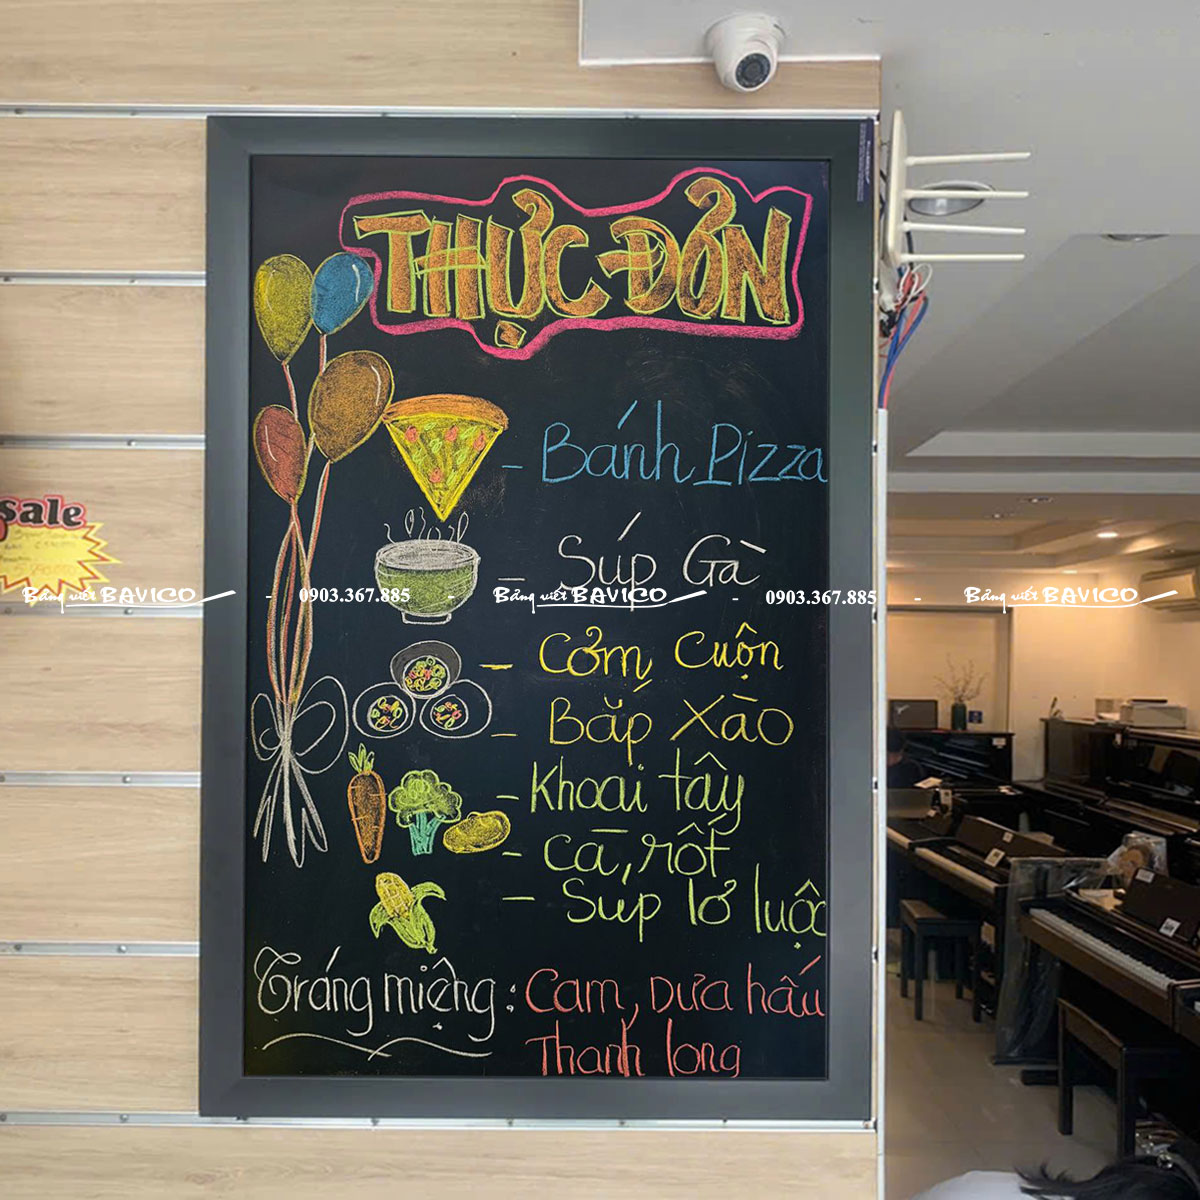 THỰC ĐỎN
- Bánh Pizza
- Súp Gà
- Cởm Cuộn
- Bắp Xào
- Khoai tây
- Cà, rốt
- Súp lơ luộc
Tráng miệng: Cam, Dưa hấu
Thanh long
sale
Bảng viết BAVICO - 0903.367.885 - Bảng viết BAVICO - 0903.367.885 - Bảng viết BAVICO